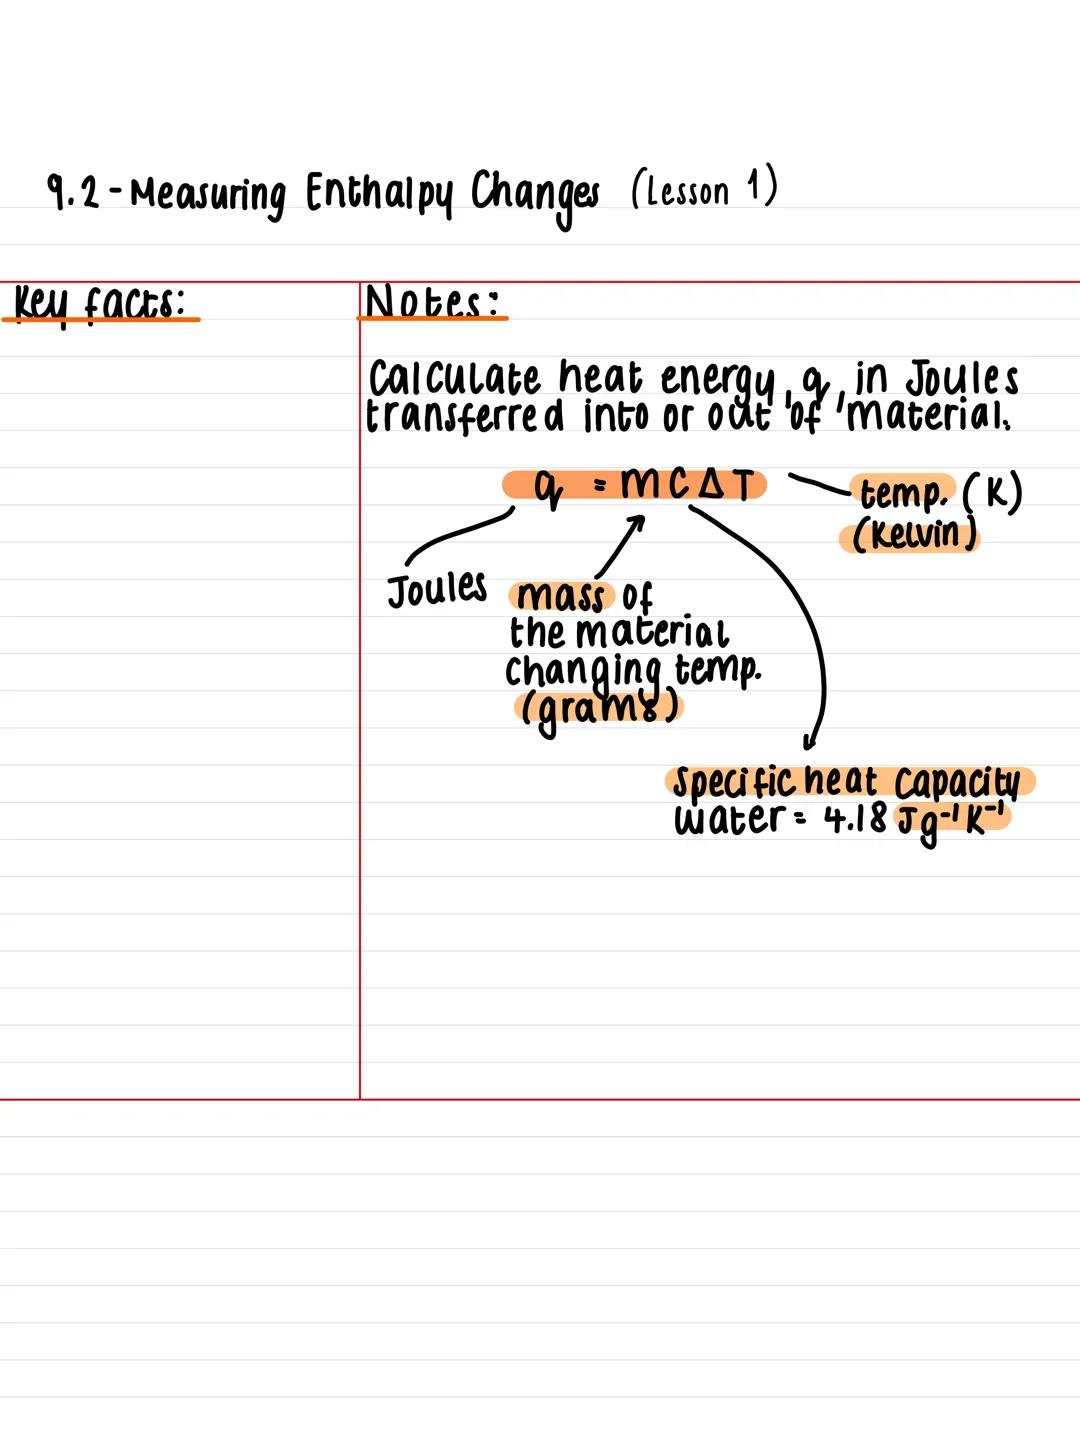 9.2 - Measuring Enthalpy Changes (Lesson 1)
Key facts:
Notes:
Calculate heat energy, q, in Joules
transferred into or out of material.
q = mCΔT
temp. (K)
(Kelvin)
Joules
mass of
the material
changing temp.
(grams)
specific heat capacity
water = 4.18 Jg⁻¹K⁻¹